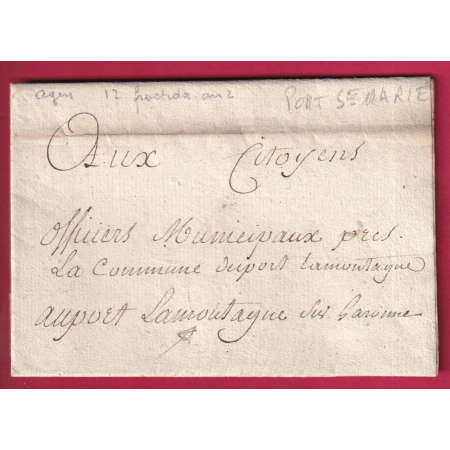 Agen 17 fructidor an 2 PORT Ste MARIE
Aux Citoyens
officiers Municipaux pres
La Commune duport Lamontagne
auport Lamontagne sur Garonne